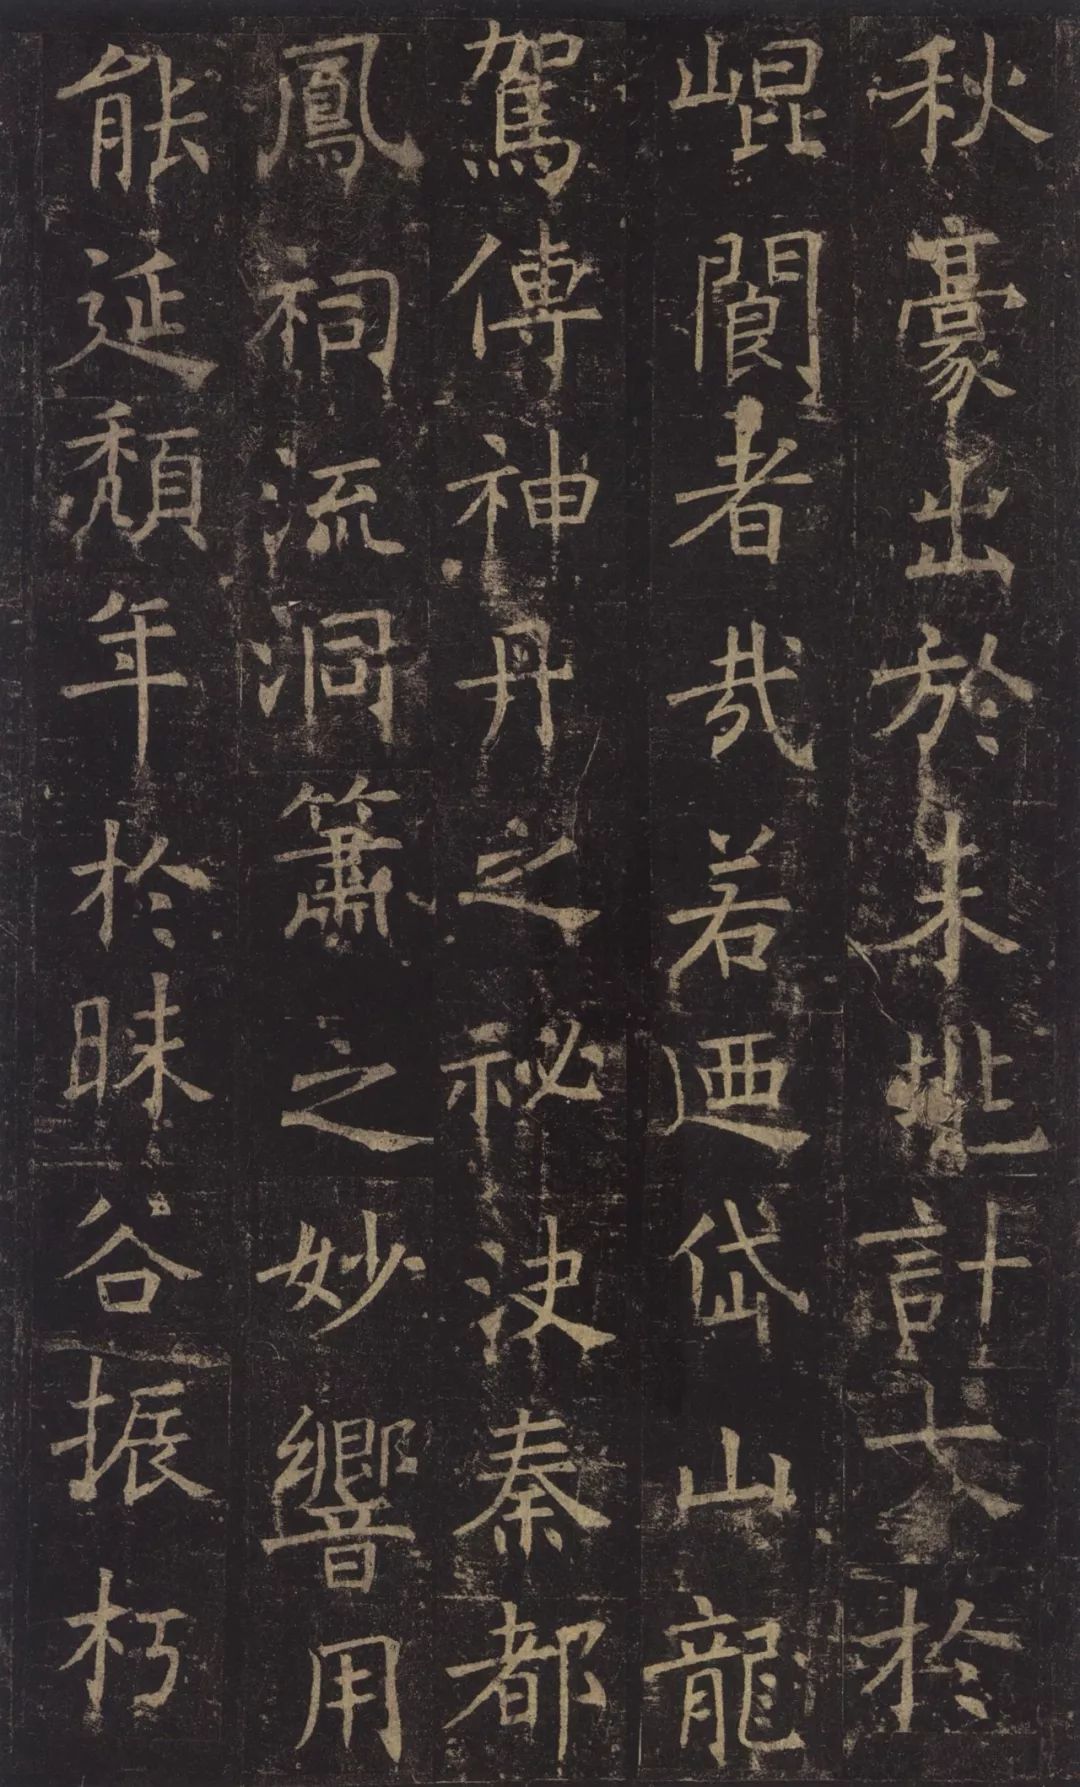 秋豪出於未兆計大於
崐閬者哉若迺岱山龍
駕傳神丹之祕決秦都
鳳祠流洞簫之妙響用
能延頽年於昧谷振朽